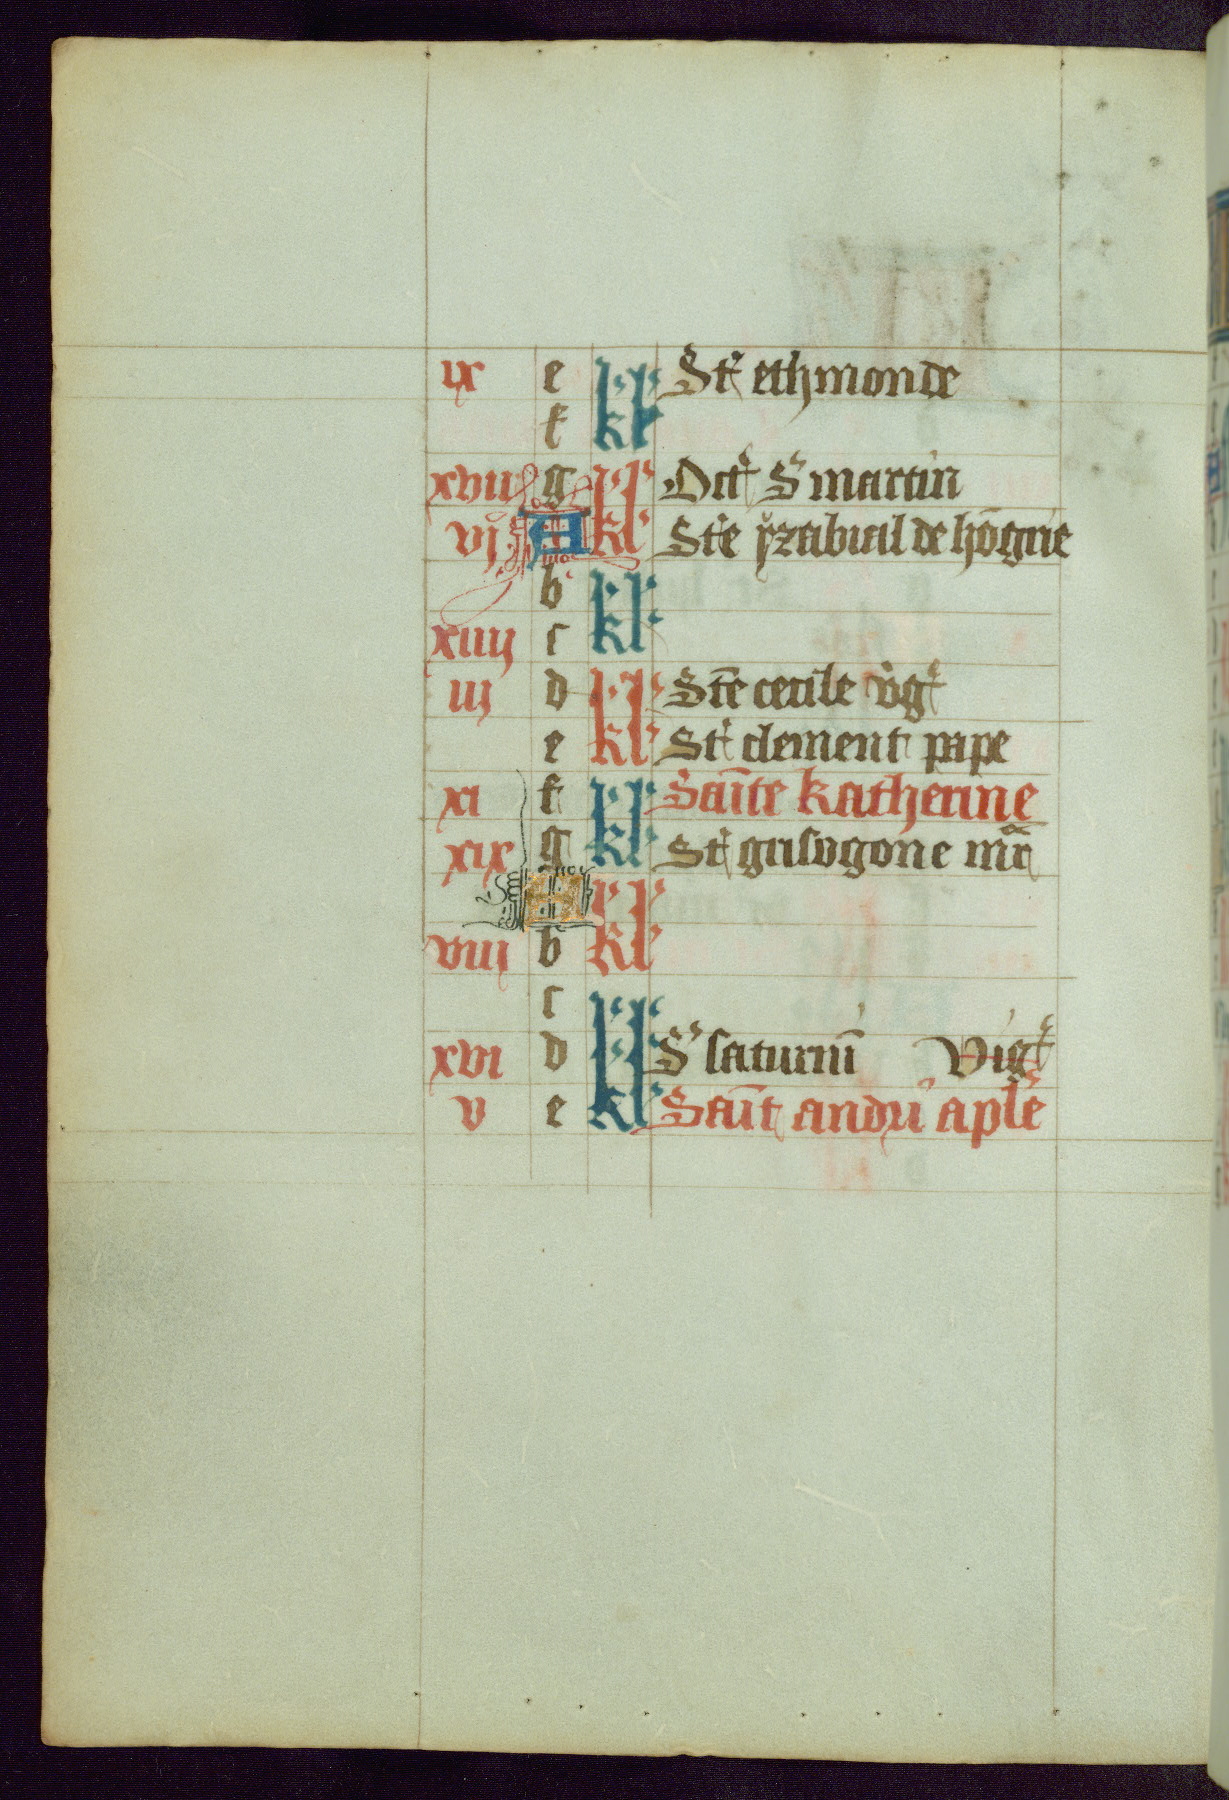 ix e kl St ethmonde
f kl
xvii g kl Oct S martin
vi A kl Ste yzabial de hōgrie
b kl
xiiij c kl
iij d kl Ste cecile v̄g
e kl St clement pape
xi f kl Saīte katherine
xix g kl St grisogone mr̄
A kl
viij b kl
c kl
xvi d kl S saturnī Vig
v e kl Saīt andri aple